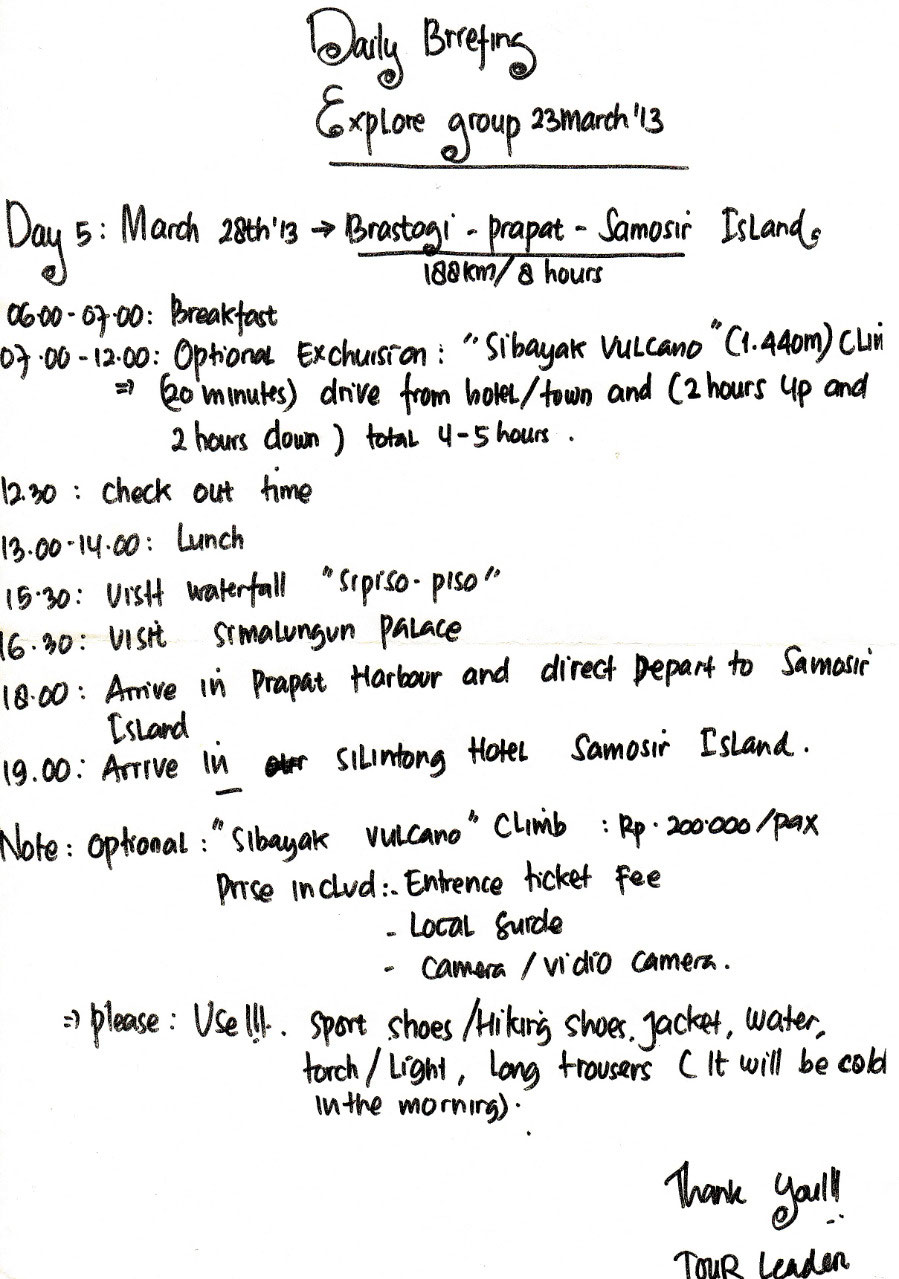 Daily Brrefing
Explore group 23march'13
Day 5: March 28th'13 → Brastagi - prapat - Samosir Island.
188km/8 hours
06.00-07.00: Breakfast
07.00-12.00: Optional Exchuision: "Sibayak Vulcano" (1.440m) Clim
⇒ (20 minutes) drive from hotel/town and (2 hours up and
2 hours down) total 4-5 hours.
12.30: check out time
13.00-14.00: Lunch
15.30: Visit waterfall "Sipiso-piso"
16.30: Visit simalungun Palace
18.00: Arrive in Prapat Harbour and direct Depart to Samosir
Island
19.00: Arrive in Silintong Hotel Samosir Island.
Note: optional: "Sibayak Vulcano" Climb : Rp. 200.000/pax
Price includ:- Entrence ticket Fee
- Local Guide
- Camera / Vidio camera.
⇒ please: Use!!!. sport shoes/Hiking shoes, jacket, water,
torch/Light, long trousers (It will be cold
in the morning).
Thank you!!!
Tour Leader